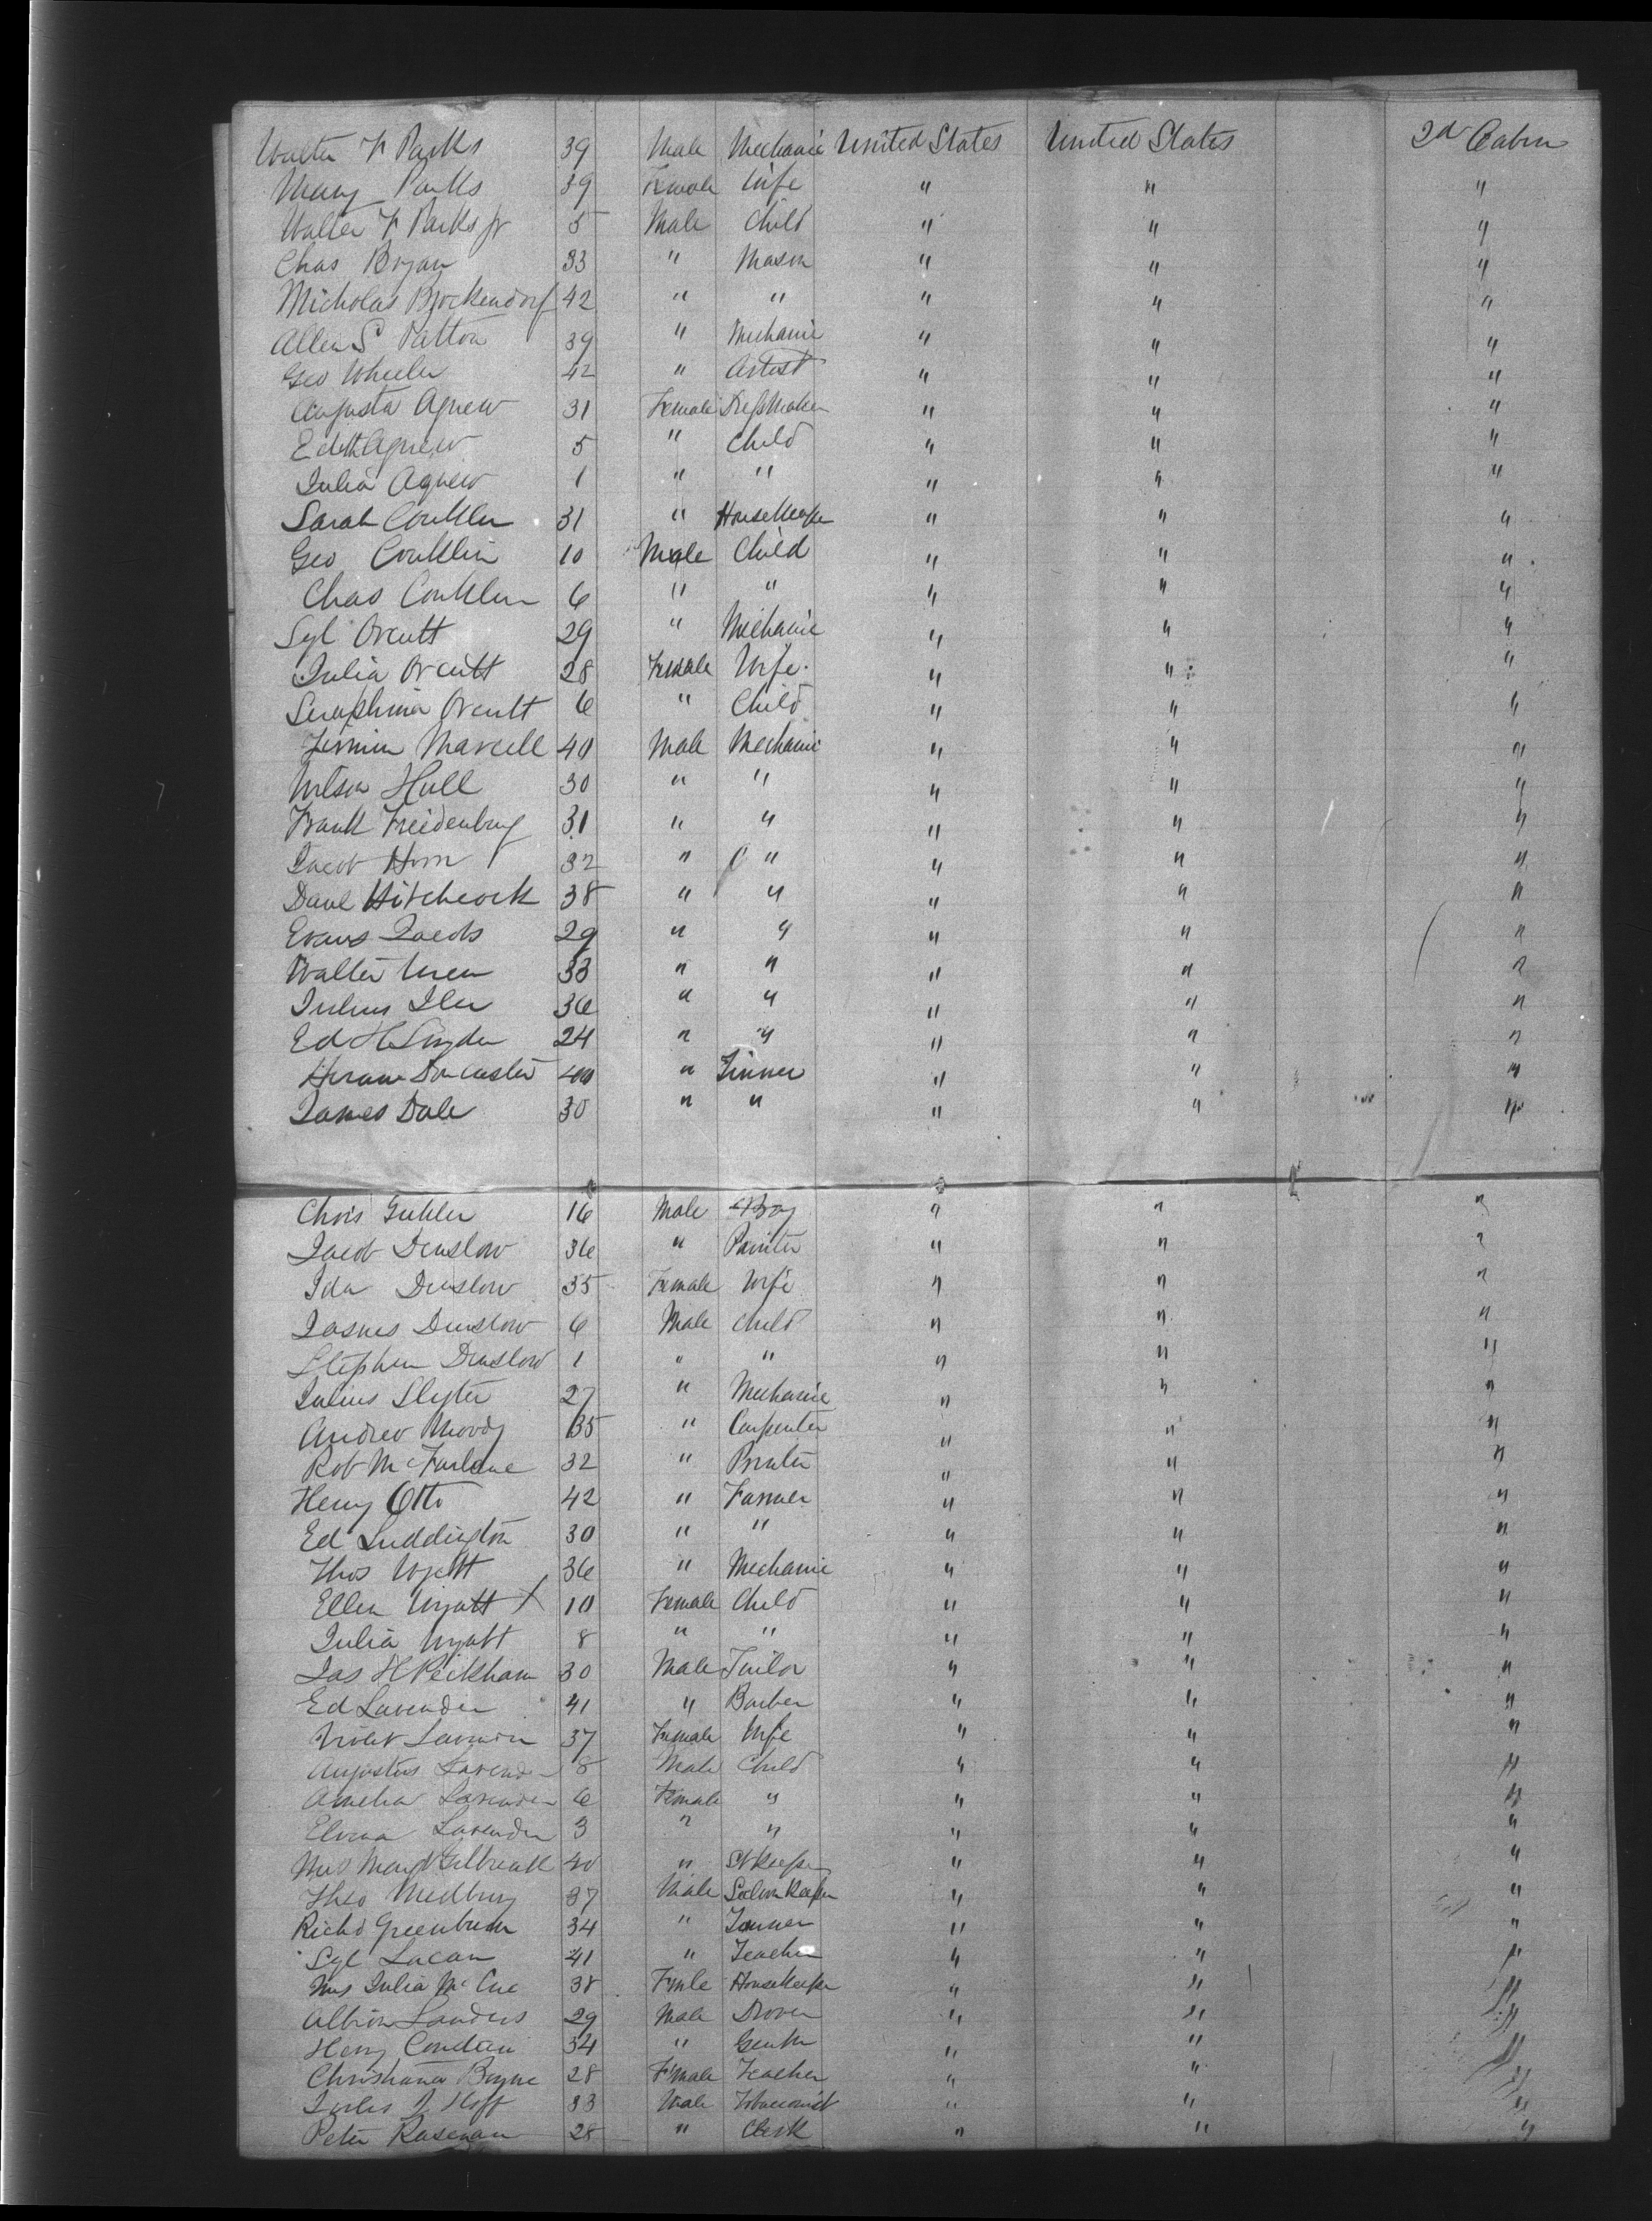 Walter F Parks 39 Male Mechanic United States United States 2d Cabin
Mary Parks 39 Female Wife " " "
Walter F Parks Jr 5 Male Child " " "
Chas Bryan 33 " Mason " " "
Nicholas Brockendorf 42 " " " " "
Allen S Patton 39 " Mechanic " " "
Geo Wheeler 42 " Artist " " "
Augusta Agnew 31 Female DressMaker " " "
Edith Agnew 5 " Child " " "
Julia Agnew 1 " " " " "
Sarah Conklin 31 " HouseKeeper " " "
Geo Conklin 10 Male Child " " "
Chas Conklin 6 " " " " "
Syl Orcutt 29 " Mechanic " " "
Julia Orcutt 28 Female Wife " " "
Seraphina Orcutt 6 " Child " " "
Marcell 40 Male Mechanic " " "
Nelson Hull 30 " " " " "
Frank Freidenburg 31 " " " " "
Jacob Horn 32 " " " " "
Danl Hitchcock 38 " " " " "
Evans Jacobs 29 " " " " "
Walter 33 " " " " "
Julius Iler 36 " " " " "
Ed H Snyder 24 " " " " "
Hiram Doncaster 40 " Tinner " " "
James Dale 30 " " " " "
Chris Guhler 16 Male Boy " " "
Jacob Denslow 36 " Painter " " "
Ida Denslow 35 Female Wife " " "
James Denslow 6 Male Child " " "
Stephen Denslow 1 " " " " "
Julius Slyter 27 " Mechanic " " "
Andrew Moody 35 " Carpenter " " "
Rob McFarlane 32 " Printer " " "
Henry Otto 42 " Farmer " " "
Ed Luddington 30 " " " " "
Thos Wyatt 36 " Mechanic " " "
Ellen Wyatt X 10 Female Child " " "
Julia Wyatt 8 " " " " "
Jas H Peckham 30 Male Tailor " " "
Ed Lavender 41 " Barber " " "
Violet 37 Female Wife " " "
Augustus Lavender 8 Male Child " " "
Amelia Lavender 6 Female " " " "
Elvina Lavender 3 " " " " "
Mrs Mary Gilbreath 40 " " " "
Theo Medbury 37 Male Saloon Keeper " " "
Richd Greenbaum 34 " Tanner " " "
Syl Lucan 41 " Teacher " " "
Mrs Julia McCue 38 Fmle HouseKeeper " " "
Albion Landers 29 Male Drover " " "
Henry 34 " Gentn " " "
Christiana Bogue 28 F'male Teacher " " "
Hoff 33 Male Tobacconist " " "
Peter Rasenau 28 " Clerk " " "